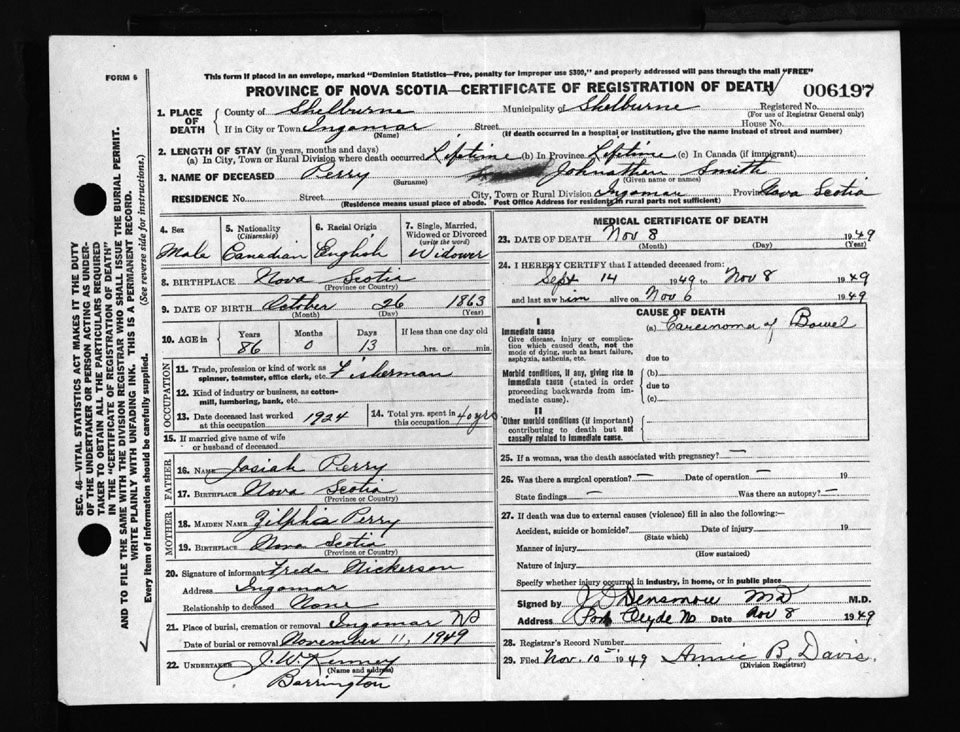 FORM 6
This form if placed in an envelope, marked "Dominion Statistics—Free, penalty for improper use $300," and properly addressed will pass through the mail "FREE"
PROVINCE OF NOVA SCOTIA—CERTIFICATE OF REGISTRATION OF DEATH
006197
1. PLACE OF DEATH
County of Shelburne Municipality of Shelburne Registered No.
(For use of Registrar General only)
If in City or Town Ingomar Street House No.
(Name) (If death occurred in a hospital or institution, give the name instead of street and number)
2. LENGTH OF STAY (in years, months and days)
(a) In City, Town or Rural Division where death occurred Lifetime (b) In Province Lifetime (c) In Canada (if immigrant)
3. NAME OF DECEASED Perry Johnathen Smith
(Surname) (Given name or names)
RESIDENCE No. Street City, Town or Rural Division Ingomar Province Nova Scotia
(Residence means usual place of abode. Post Office Address for residents in rural parts not sufficient)
4. Sex Male
5. Nationality (Citizenship) Canadian
6. Racial Origin English
7. Single, Married, Widowed or Divorced (write the word) Widower
8. BIRTHPLACE Nova Scotia
(Province or Country)
9. DATE OF BIRTH October 26 1863
(Month) (Day) (Year)
10. AGE in Years 86 Months 0 Days 13 If less than one day old
hrs. or min.
OCCUPATION
11. Trade, profession or kind of work as spinner, teamster, office clerk, etc. Fisherman
12. Kind of industry or business, as cotton-mill, lumbering, bank, etc.
13. Date deceased last worked at this occupation 1924
14. Total yrs. spent in this occupation 40 yrs
15. If married give name of wife or husband of deceased
FATHER
16. NAME Josiah Perry
17. BIRTHPLACE Nova Scotia
(Province or Country)
MOTHER
18. MAIDEN NAME Zilphia Perry
19. BIRTHPLACE Nova Scotia
(Province or Country)
20. Signature of informant Freda Nickerson
Address Ingomar
Relationship to deceased None
21. Place of burial, cremation or removal Ingomar NS
Date of burial or removal November 11, 1949
22. UNDERTAKER J. W. Kenney
(Name and address)
Barrington
MEDICAL CERTIFICATE OF DEATH
23. DATE OF DEATH Nov 8 1949
(Month) (Day) (Year)
24. I HEREBY CERTIFY that I attended deceased from:
Sept 14 1949 to Nov 8 1949
and last saw him alive on Nov 6 1949
CAUSE OF DEATH
I
Immediate cause (a) Carcinoma of Bowel
Give disease, injury or complication which caused death, not the mode of dying, such as heart failure, asphyxia, asthenia, etc.
due to
Morbid conditions, if any, giving rise to immediate cause (stated in order proceeding backwards from immediate cause).
(b)
due to
(c)
II
Other morbid conditions (if important) contributing to death but not causally related to immediate cause.
25. If a woman, was the death associated with pregnancy? —
26. Was there a surgical operation? — Date of operation — 19
State findings — Was there an autopsy? —
27. If death was due to external causes (violence) fill in also the following:—
Accident, suicide or homicide? Date of injury 19
(State which)
Manner of injury
(How sustained)
Nature of injury
Specify whether injury occurred in industry, in home, or in public place
Signed by Densmore MD M.D.
Address Port Clyde NS Date Nov 8 1949
28. Registrar's Record Number
29. Filed Nov. 10 1949 Annie B. Davis.
(Division Registrar)
SEC. 46—VITAL STATISTICS ACT MAKES IT THE DUTY
OF THE UNDERTAKER OR PERSON ACTING AS UNDER-
TAKER TO OBTAIN ALL THE PARTICULARS REQUIRED
IN THE "CERTIFICATE OF REGISTRATION OF DEATH"
AND TO FILE THE SAME WITH THE DIVISION REGISTRAR WHO SHALL ISSUE THE BURIAL PERMIT.
WRITE PLAINLY WITH UNFADING INK. THIS IS A PERMANENT RECORD.
Every item of information should be carefully supplied. (See reverse side for instructions.)